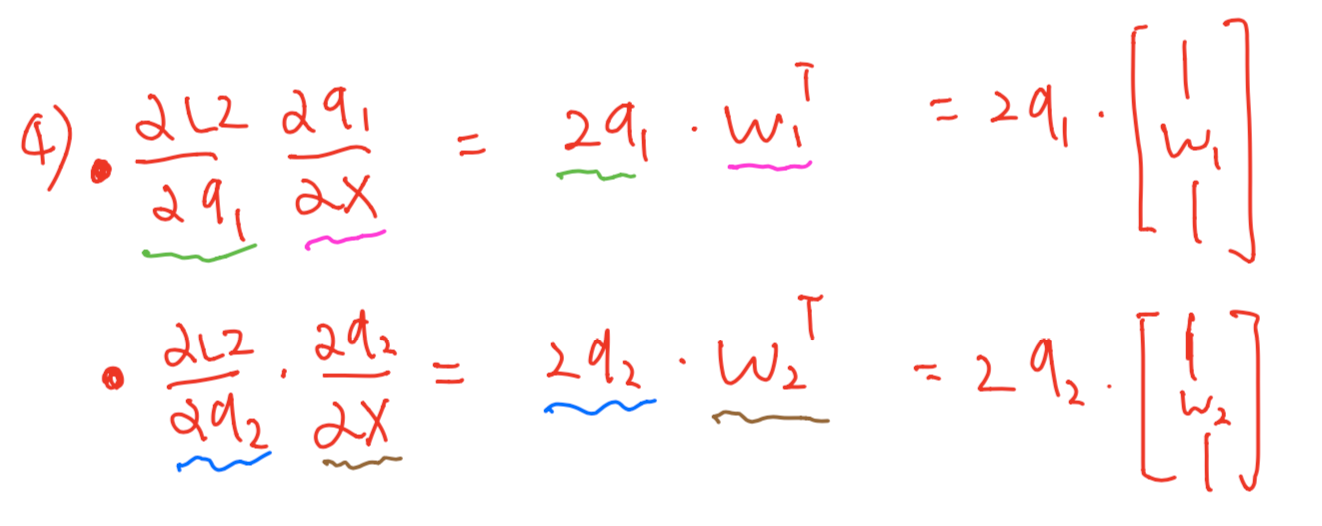 4) • ∂L2/∂q₁ ∂q₁/∂X = 2q₁ · W₁ᵀ = 2q₁ · [ | W₁ | ]
• ∂L2/∂q₂ · ∂q₂/∂X = 2q₂ · W₂ᵀ = 2q₂ · [ | W₂ | ]